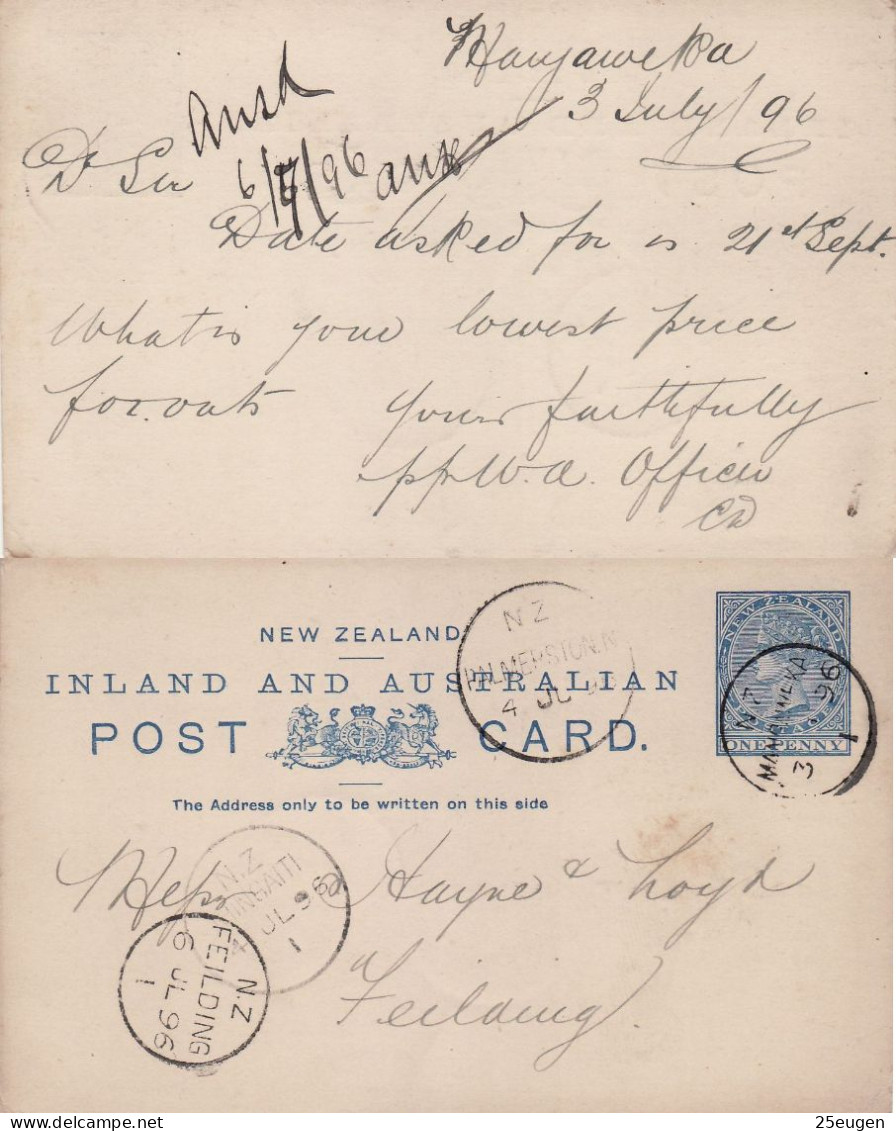 Mangaweka
3 July / 96
Ansd
6/7/96 ans
Dr Sir
Date asked for is 21st Sept.
What is your lowest price
for oats yours faithfully
pp W.A. Officer
NEW ZEALAND
INLAND AND AUSTRALIAN
POST CARD.
The Address only to be written on this side
NEW ZEALAND
POSTAGE
ONE PENNY
N Z
PALMERSTON.N
4 JL
N Z
MANGAWEKA
3 96
1
N.Z
JL 96
1
N.Z
FEILDING
6 JL 96
1
Messrs Hayne & Loyd
Feilding
25eugen